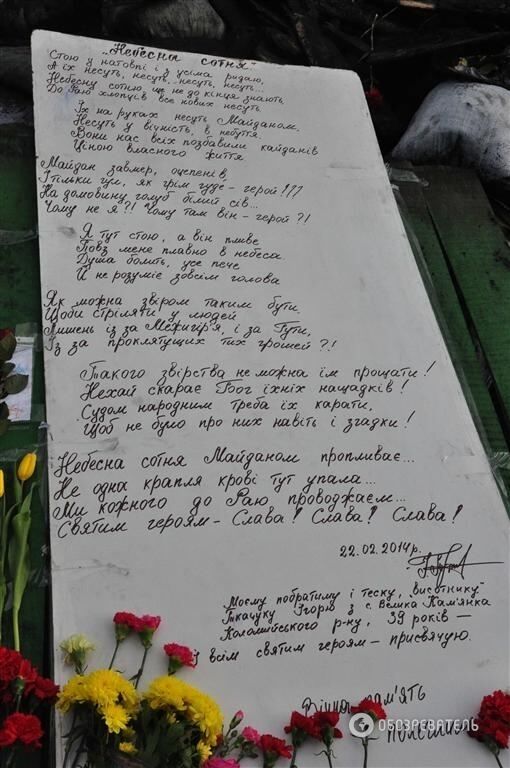 „Небесна сотня"
Стою у натовпі і з усіма ридаю,
А їх несуть, несуть, несуть, несуть...
Небесну сотню, ще не до кінця знають,
До Раю хлопців все нових несуть.
Їх на руках несуть Майданом,
Несуть у вічність, в небуття.
Вони нас всіх позбавили кайданів
Ціною власного життя.
Майдан завмер, оцепенів
І тільки гул, як грім гуде - герой!!!
На домовину голуб білий сів...
Чому не я?! Чому там він - герой?!
Я тут стою, а він пливе
Повз мене плавно в небеса.
Душа болить, усе пече
Й не розуміє зовсім голова
Як можна звіром таким бути,
Щоби стріляти у людей
Лишень із за Межигір'я, і за Пути,
Із за проклятущих тих грошей?!
Такого звірства не можна їм прощати!
Нехай скарає Бог їхніх нащадків!
Судом народним треба їх карати,
Щоб не було про них навіть і згадки!
Небесна сотня Майданом пропливає...
Не одна крапля крові тут упала...
Ми кожного до Раю проводжаєм...
Святим героям - Слава! Слава! Слава!
22.02.2014р.
Моєму побратиму і теску, „висотнику"
Ткачуку Ігорю з с. Велика Кам'янка
Коломийського р-ну, 39 років -
і всім святим героям - присвячую.
Вічна пам'ять
ОБОЗРЕВАТЕЛЬ